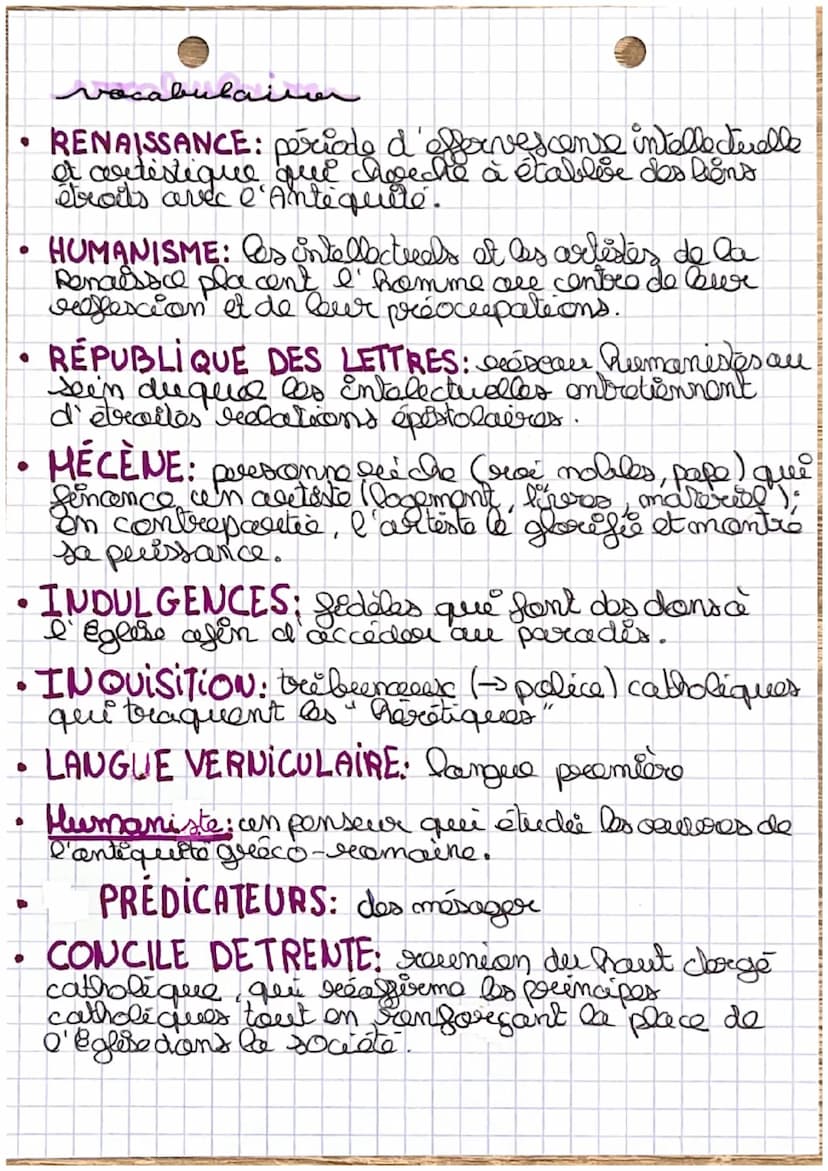 vocabulaire
• RENAISSANCE: période d'effervescense intellectuelle
et artistique qui cherche à établir des liens
étroits avec l'Antiquité.
• HUMANISME: les intellectuels et les artistes de la
Renaissce placent l'homme au centre de leur
reflexcion et de leur préoccupations.
• RÉPUBLIQUE DES LETTRES: réseau humanistes au
sein duquel les intalectuelles entretiennent
d'étroites relations épistolaires.
• MÉCÈNE: personne riche (roi nobles, pape) qui
finance un artiste (logement, livres, materiel);
en contrepartie, l'artiste le glorifie et montre
sa puissance.
• INDULGENCES: fidèles qui font des dons à
l'Eglise afin d'accéder au paradis.
• INQUISITION: tribunaux (→ police) catholiques
qui traquent les "hérétiques"
• LANGUE VERNICULAIRE: langue première
• Humaniste: un penseur qui étudie les oeuvres de
l'antiquité gréco-romaine.
• PRÉDICATEURS: des mésager
• CONCILE DE TRENTE: réunion du haut clergé
catholique, qui réaffirme les principes
catholiques tout en renforçant la place de
l'Eglise dans la société.